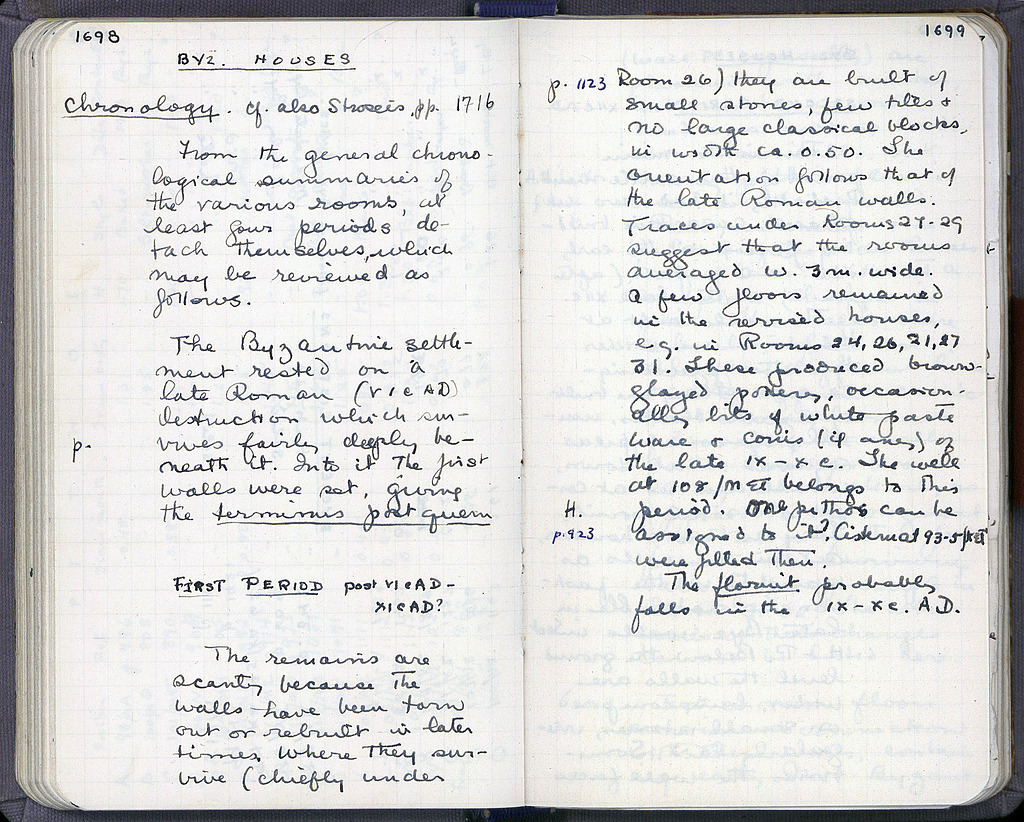 1698
BYZ. HOUSES
Chronology. cf. also Stroseis, pp. 1716
From the general chrono-
logical summaries of
the various rooms, at
least four periods de-
tach themselves, which
may be reviewed as
follows.
The Byzantine settle-
ment rested on a
late Roman (VI c AD)
destruction which sur-
vives fairly deeply be-
p. neath it. Into it the first
walls were set, giving
the terminus post quem
FIRST PERIOD post VI c AD -
XI c AD?
The remains are
scanty because the
walls have been torn
out or rebuilt in later
times. Where they sur-
vive (chiefly under
1699
p. 1123 Room 26) they are built of
small stones, few tiles +
no large classical blocks,
in width ca. 0.50. The
orientation follows that of
the late Roman walls.
Traces under Rooms 27-29
suggest that the rooms
averaged w. 3 m. wide.
A few floors remained
in the revised houses,
e.g. in Rooms 24, 26, 21, 27
31. These produced brown-
glazed pottery, occasion-
ally bits of white paste
ware + coins (if any) of
the late IX - X c. The well
at 108/ME belongs to this
H. period. One pithos can be
p. 923 assigned to it? Cistern at 93-5/
were filled then.
The floruit probably
falls in the IX - X c. A.D.